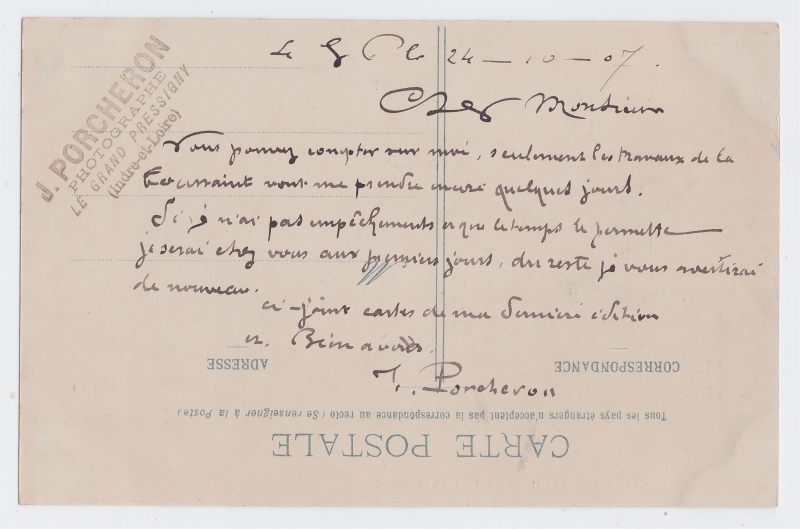 J. PORCHERON
PHOTOGRAPHE
LE GRAND PRESSIGNY
(Indre-et-Loire)
Le G P le 24 — 10 — 07.
Cher Monsieur
Vous pouvez compter sur moi, seulement les travaux de la
Toussaint vont me prendre encore quelques jours.
Si je n'ai pas empêchements et que le temps le permette
je serai chez vous aux premiers jours, du reste je vous avertirai
de nouveau.
ci-joint cartes de ma dernière édition
et Bien à vous.
J. Porcheron
CORRESPONDANCE
ADRESSE
Tous les pays étrangers n'acceptent pas la correspondance au recto (Se renseigner à la Poste)
CARTE POSTALE